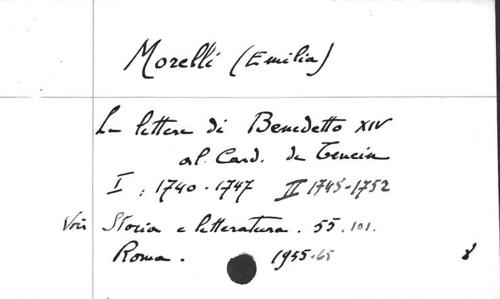 Morelli (Emilia)
Le lettere di Benedetto XIV
al Card. de Tencin
I : 1740-1747 II 1748-1752
Voir Storia e letteratura. 55. 101.
Roma. 1955-65